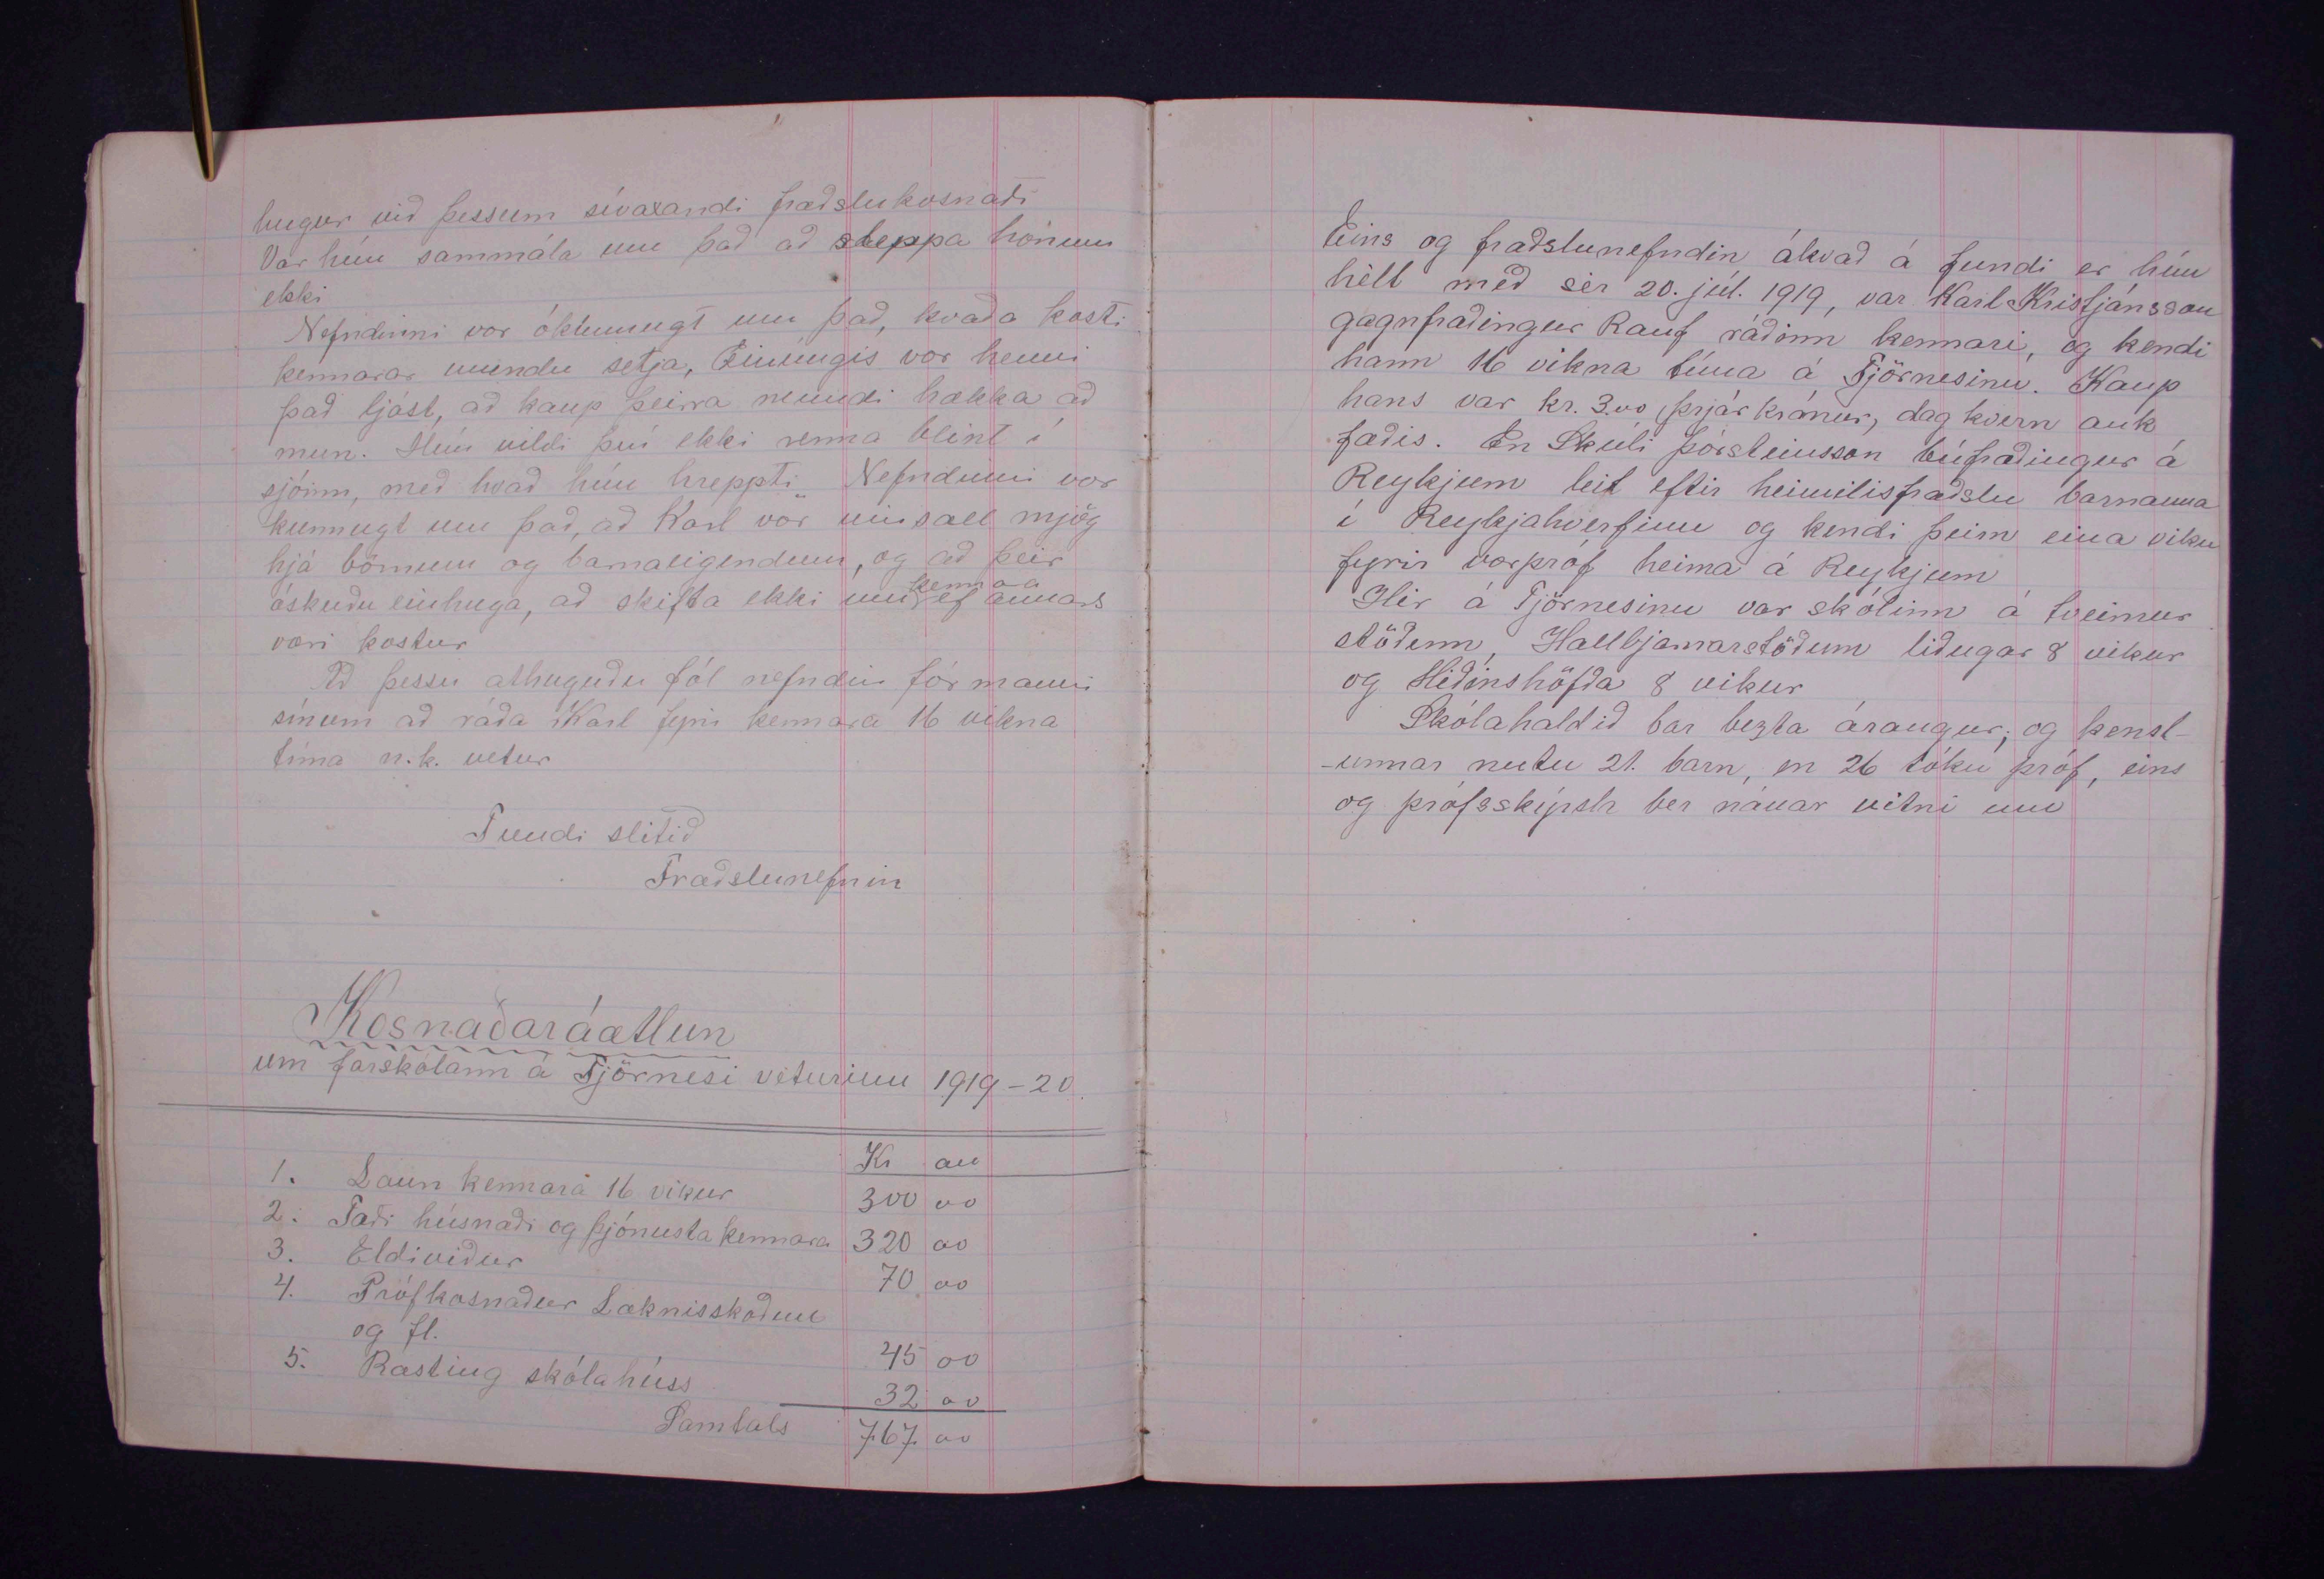 hugur við þessum sívaxandi fræðslukosnaði
Var hún sammála um það að sleppa honum
ekki
Nefndinni var ókunnugt um það, hvaða kosti
kennarar mundu setja, Einungis var henni
það ljóst, að kaup þeirra mundi hækka að
mun. Hún vildi því ekki renna blint í
sjóinn, með hvað hún hreppti. Nefndinni var
kunnugt um það, að Karl var vinsæll mjög
hjá börnum og barnaeigendum, og að þeir
óskuðu einhuga, að skifta ekki um kennara ef annars
væri kostur
Að þessu athuguðu fól nefndin formanni
sínum að ráða Karl fyrir kennara 16 vikna
tíma n.k. vetur
Fundi slitið
Fræðslunefnin
Kosnaðaráætlun
um farskólann á Tjörnesi veturinn 1919-20.
Kr au
1. Laun kennara 16 vikur 300 00
2. Fæði húsnæði og þjónusta kennara 320 00
3. Eldiviður 70 00
4. Prófkosnaður Læknisskoðun
og fl. 45 00
5. Ræsting skólahúss 32 00
Samtals 767 00
Eins og fræðslunefndin ákvað á fundi er hún
hélt með sér 20. júl. 1919, var Karl Kristjánsson
gagnfræðingur Rauf ráðinn kennari, og kendi
hann 16 vikna tíma á Tjörnesinu. Kaup
hans var kr. 3.00 þrjár krónur, dag hvern auk
fæðis. En Skúli Þorsteinsson búfræðingur á
Reykjum leit eftir heimilisfræðslu barnanna
í Reykjahverfinu og kendi þeim eina viku
fyrir vorpróf heima á Reykjum
Hér á Tjörnesinu var skólinn á tveimur
stöðum, Hallbjarnarstöðum liðugar 8 vikur
og Héðinshöfða 8 vikur
Skólahaldið bar bezta árangur; og kensl-
-unnar nutu 21. barn, en 26 tóku próf, eins
og prófsskýrsla ber nánar vitni um